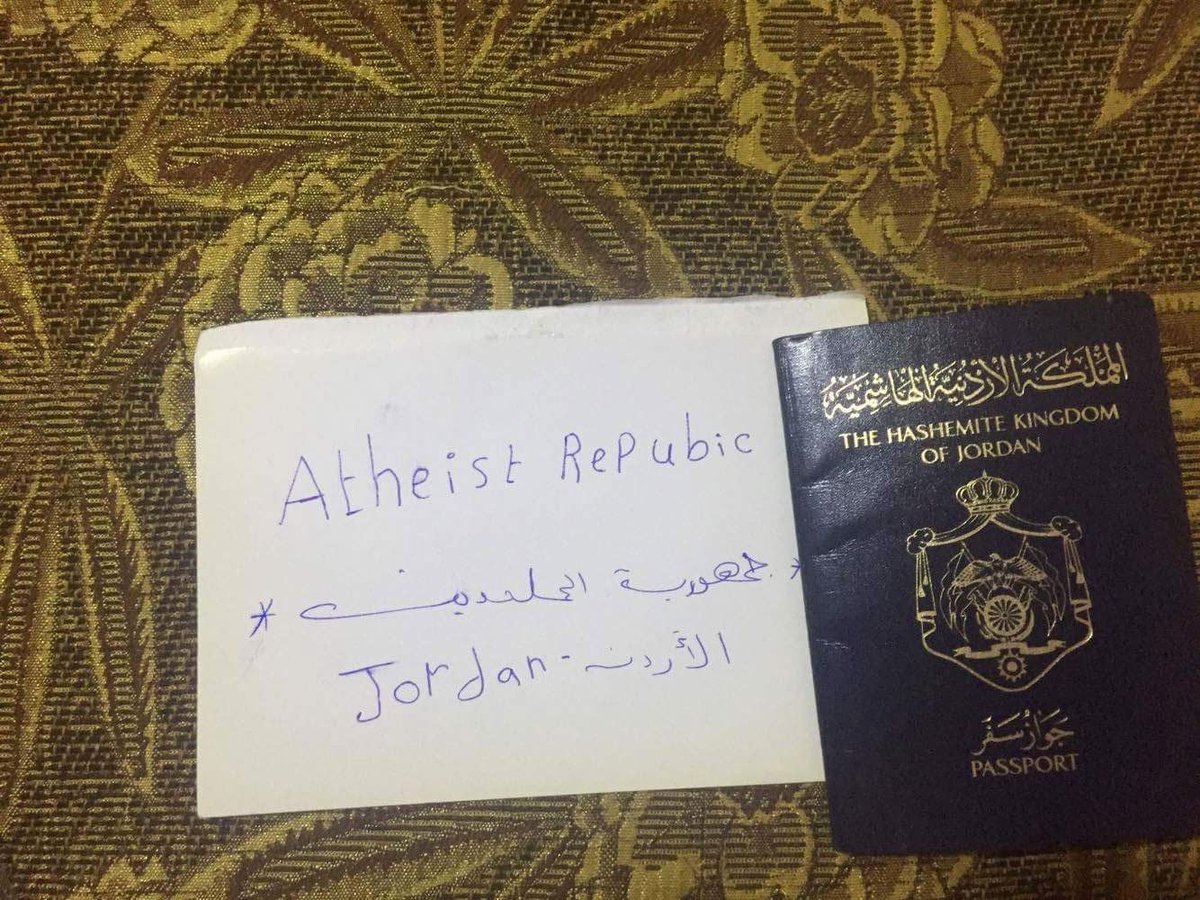 Atheist Repubic
* جمهورية الملحدين *
Jordan - الأردن
المملكة الأردنية الهاشمية
THE HASHEMITE KINGDOM
OF JORDAN
جواز سفر
PASSPORT